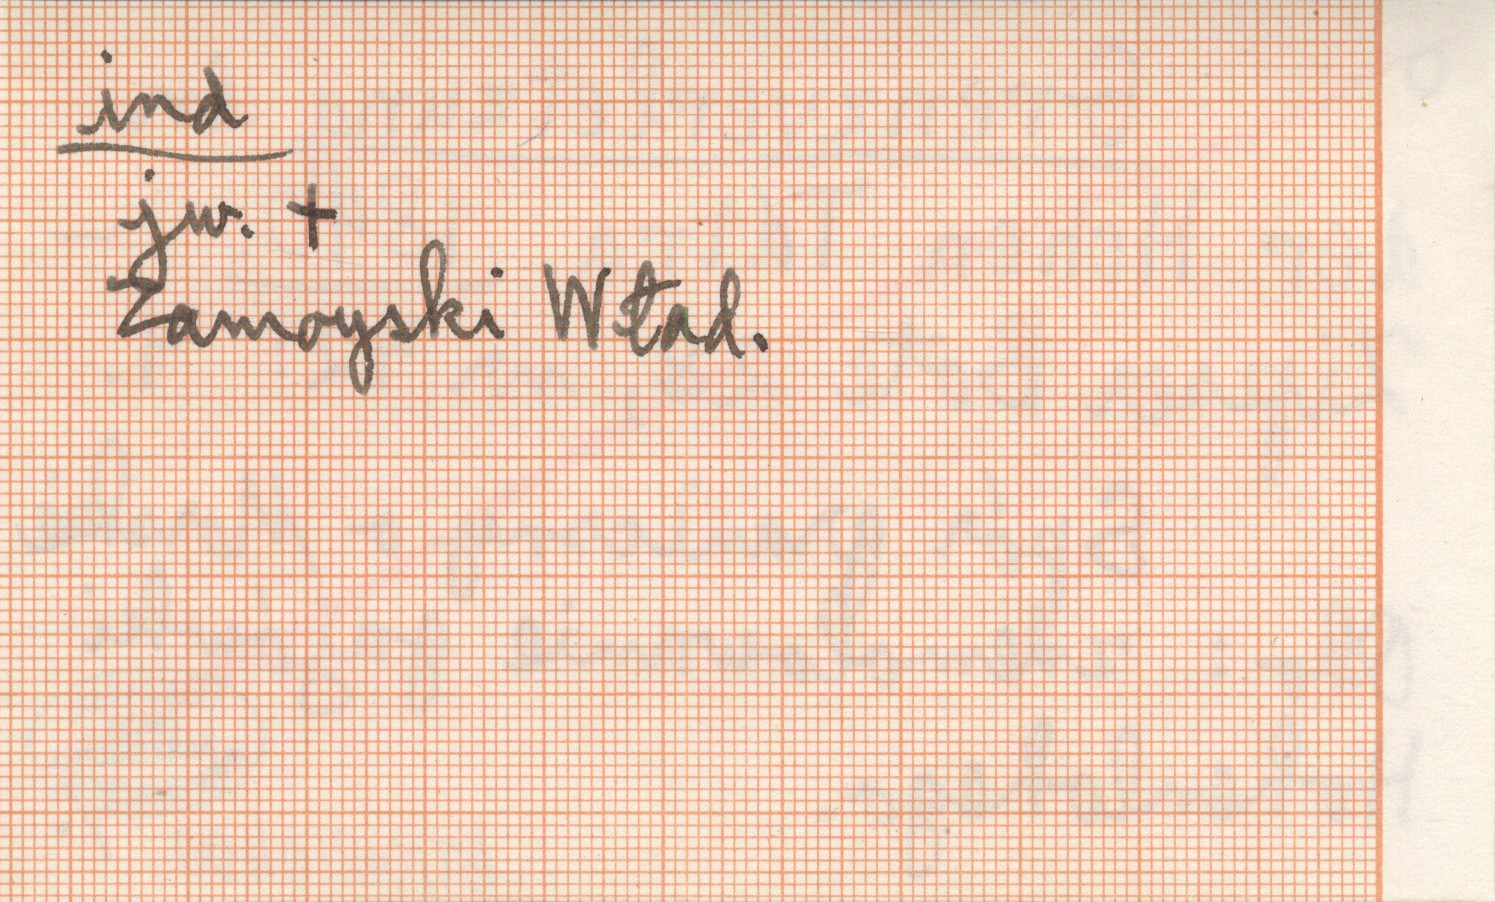 ind
jw. +
Zamoyski Wład.